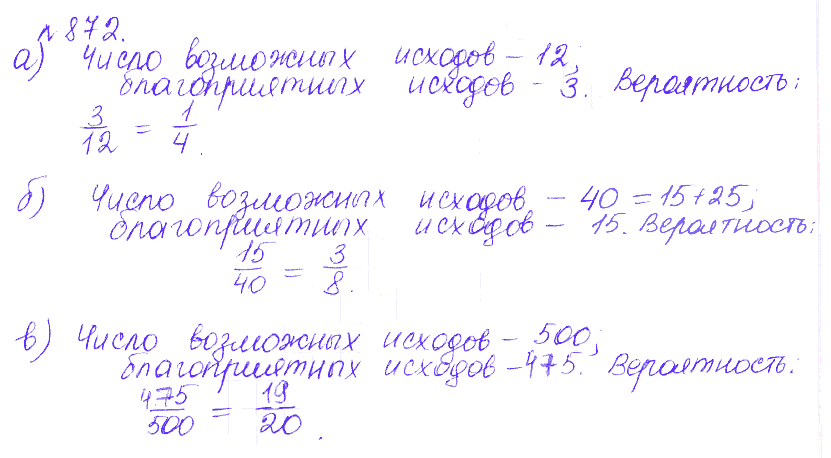 № 872.
а) Число возможных исходов – 12;
благоприятных исходов – 3. Вероятность:
3/12 = 1/4.
б) Число возможных исходов – 40 = 15+25;
благоприятных исходов – 15. Вероятность:
15/40 = 3/8.
в) Число возможных исходов – 500;
благоприятных исходов – 475. Вероятность:
475/500 = 19/20.